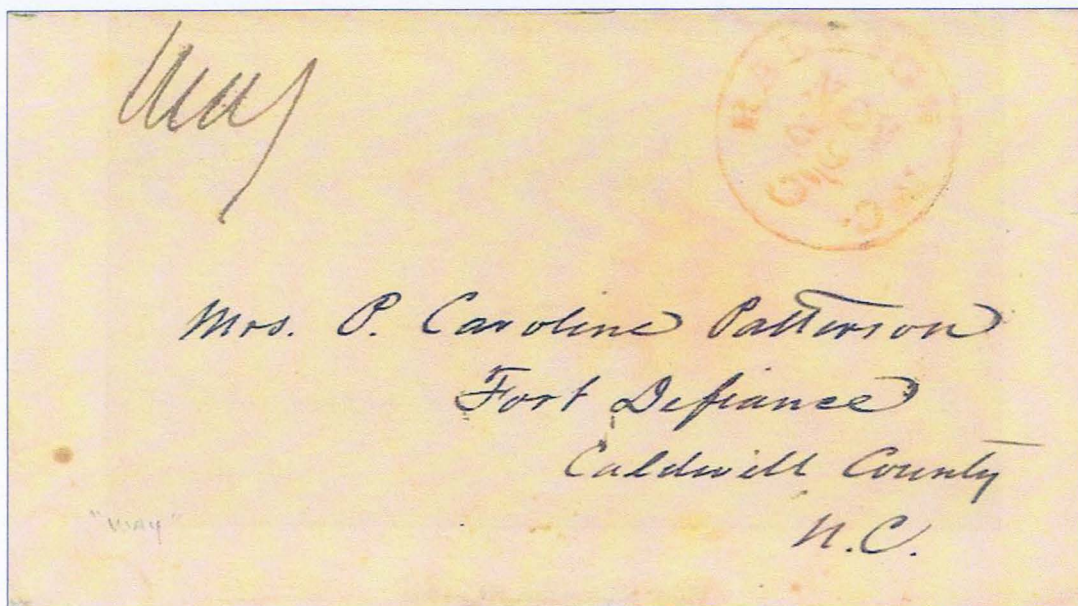 Way
N.C.
Mrs. P. Caroline Patterson
Fort Defiance
Caldwell County
N.C.
"WAY"